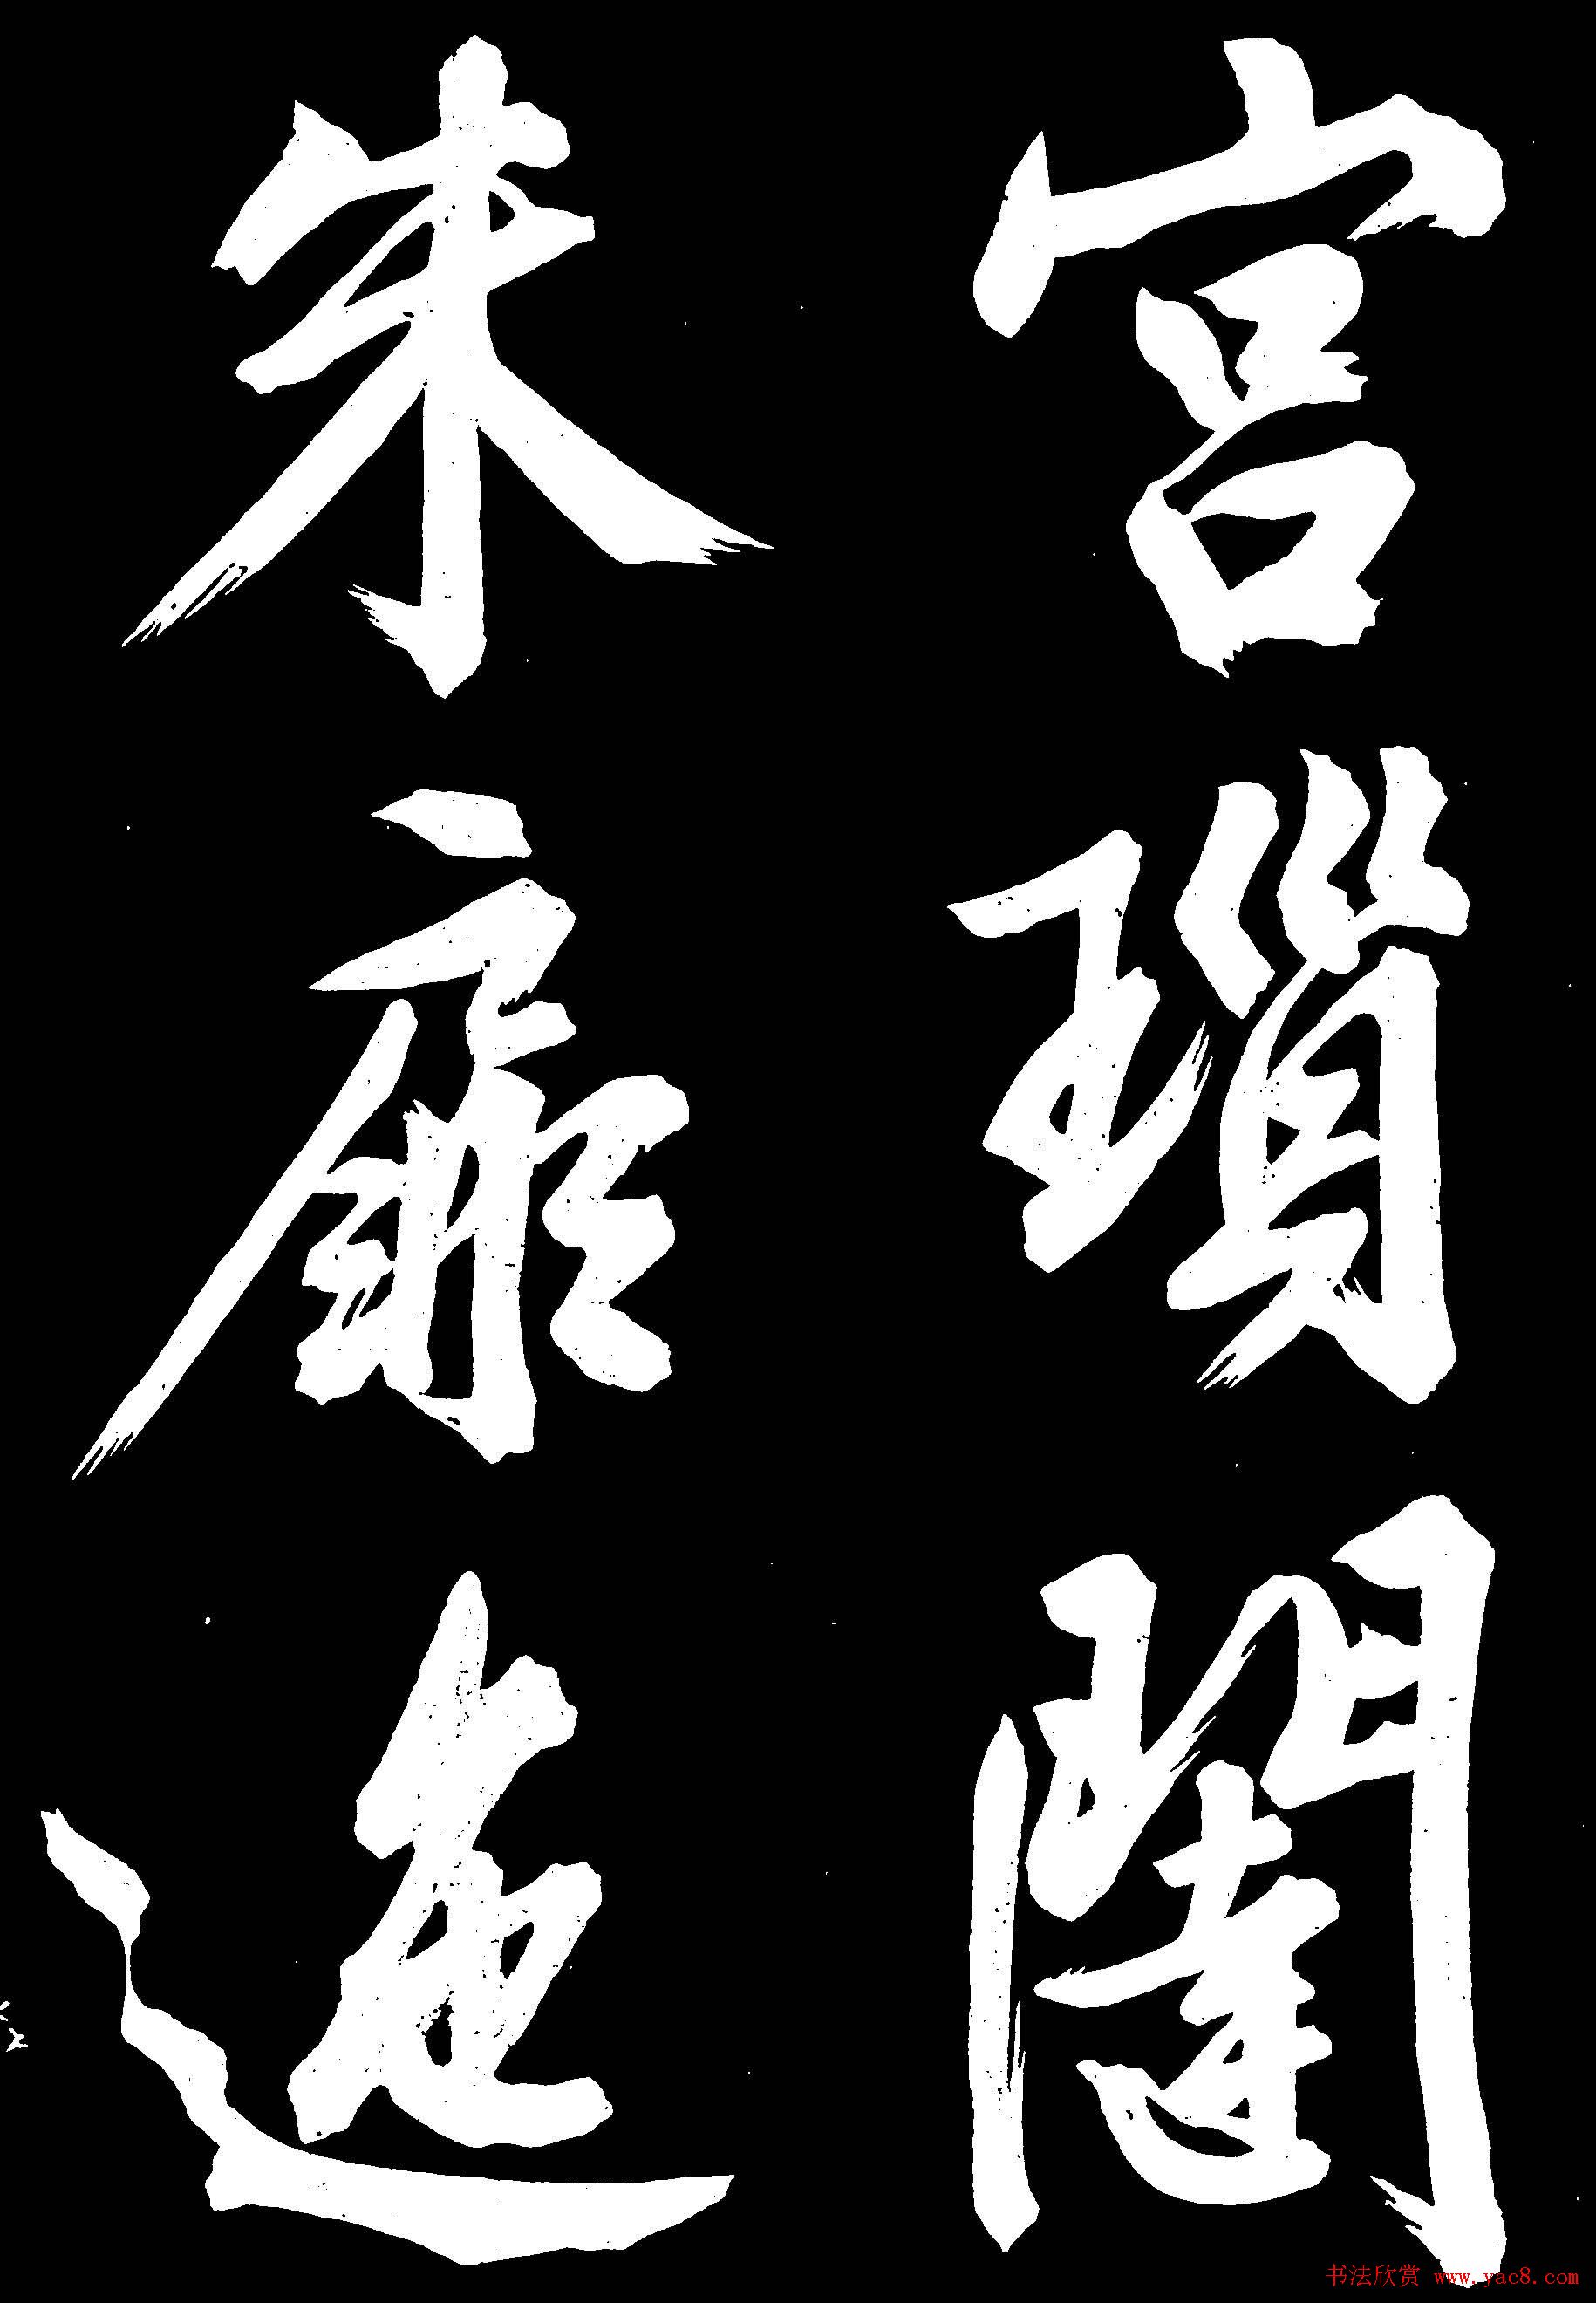 宮瑣闥
朱扉迤
书法欣赏 www.yac8.com